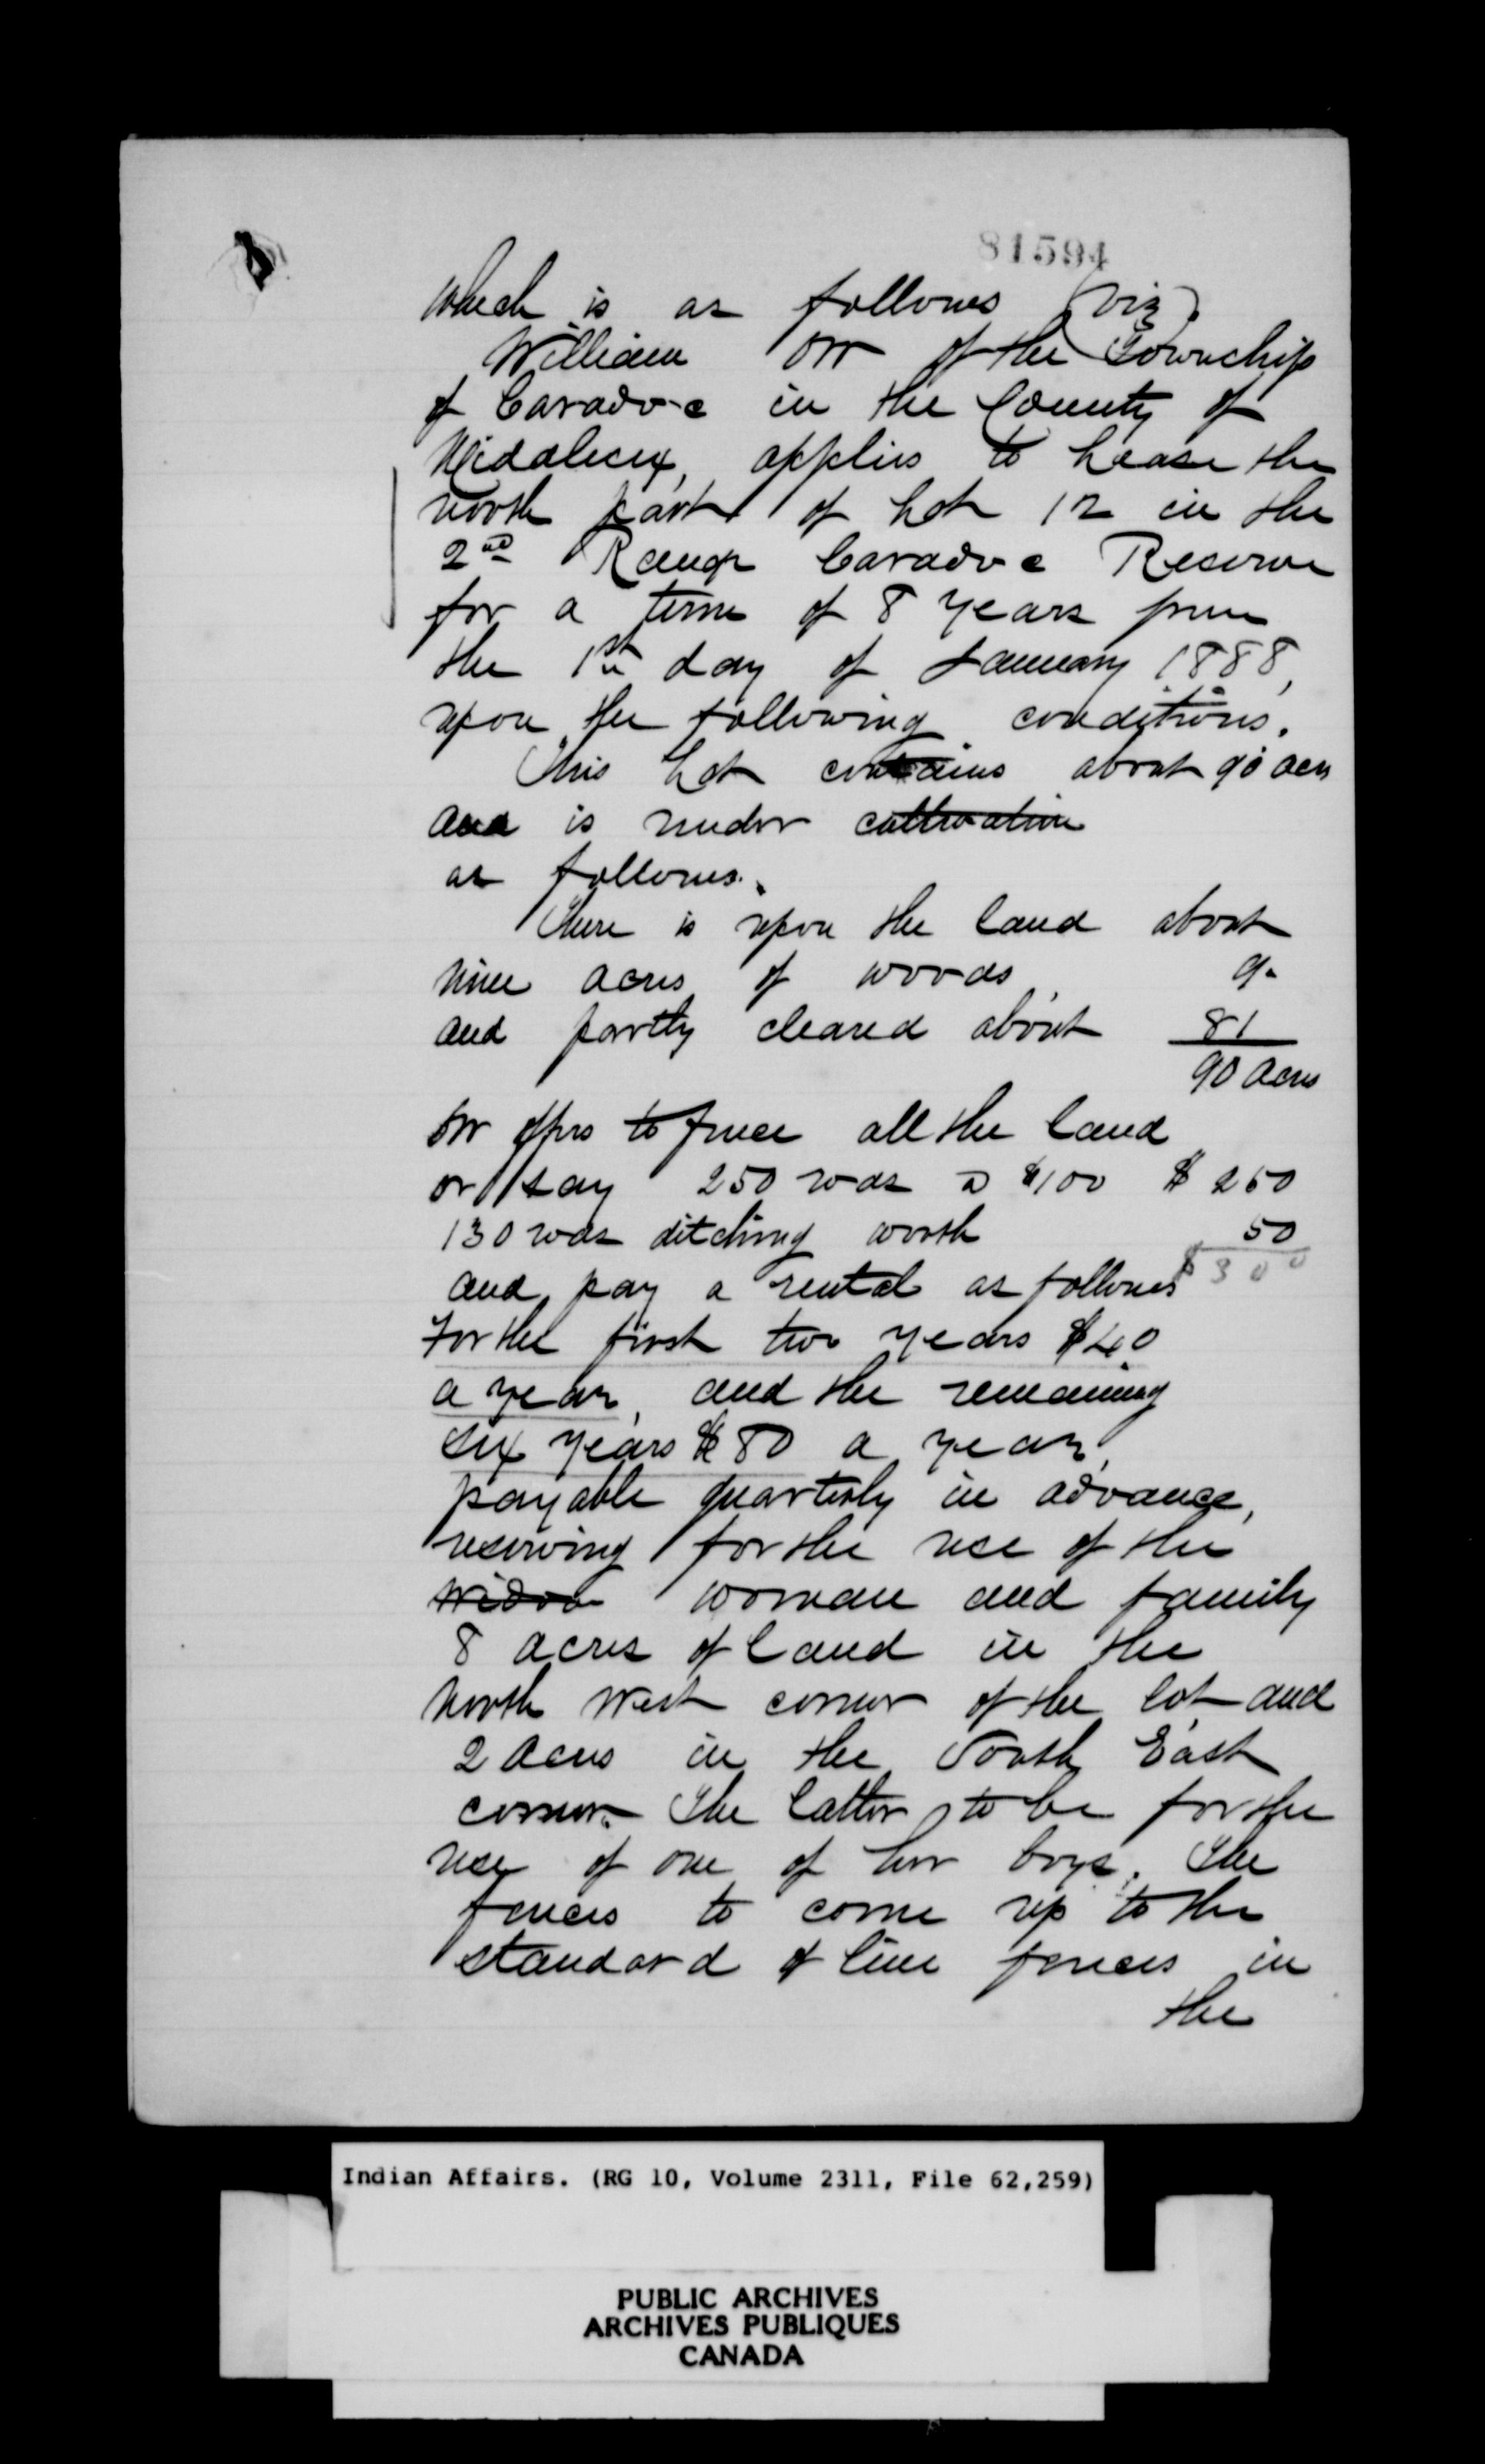 81594
which is as follows (viz)
William Orr of the Township
of Caradoc in the County of
Middlesex, applies to Lease the
north part of Lot 12 in the
2nd Range Caradoc Reserve
for a term of 8 years from
the 1st day of January 1888,
upon the following conditions.
This Lot contains about 90 acres
and is under cultivation
as follows.
There is upon the land about
nine acres of woods, 9.
and partly cleared about 81
90 acres
Orr offers to fence all the land
or say 250 rods @ $100 $ 250
130 rods ditching worth 50
and pay a rental as follows $300
For the first two years $40
a year, and the remaining
six years $80 a year,
payable quarterly in advance,
reserving for the use of the
widow woman and family
8 acres of land in the
North West corner of the lot and
2 acres in the South East
corner. The latter to be for the
use of one of her boys. The
fences to come up to the
standard of line fences in
the
Indian Affairs. (RG 10, Volume 2311, File 62,259)
PUBLIC ARCHIVES
ARCHIVES PUBLIQUES
CANADA